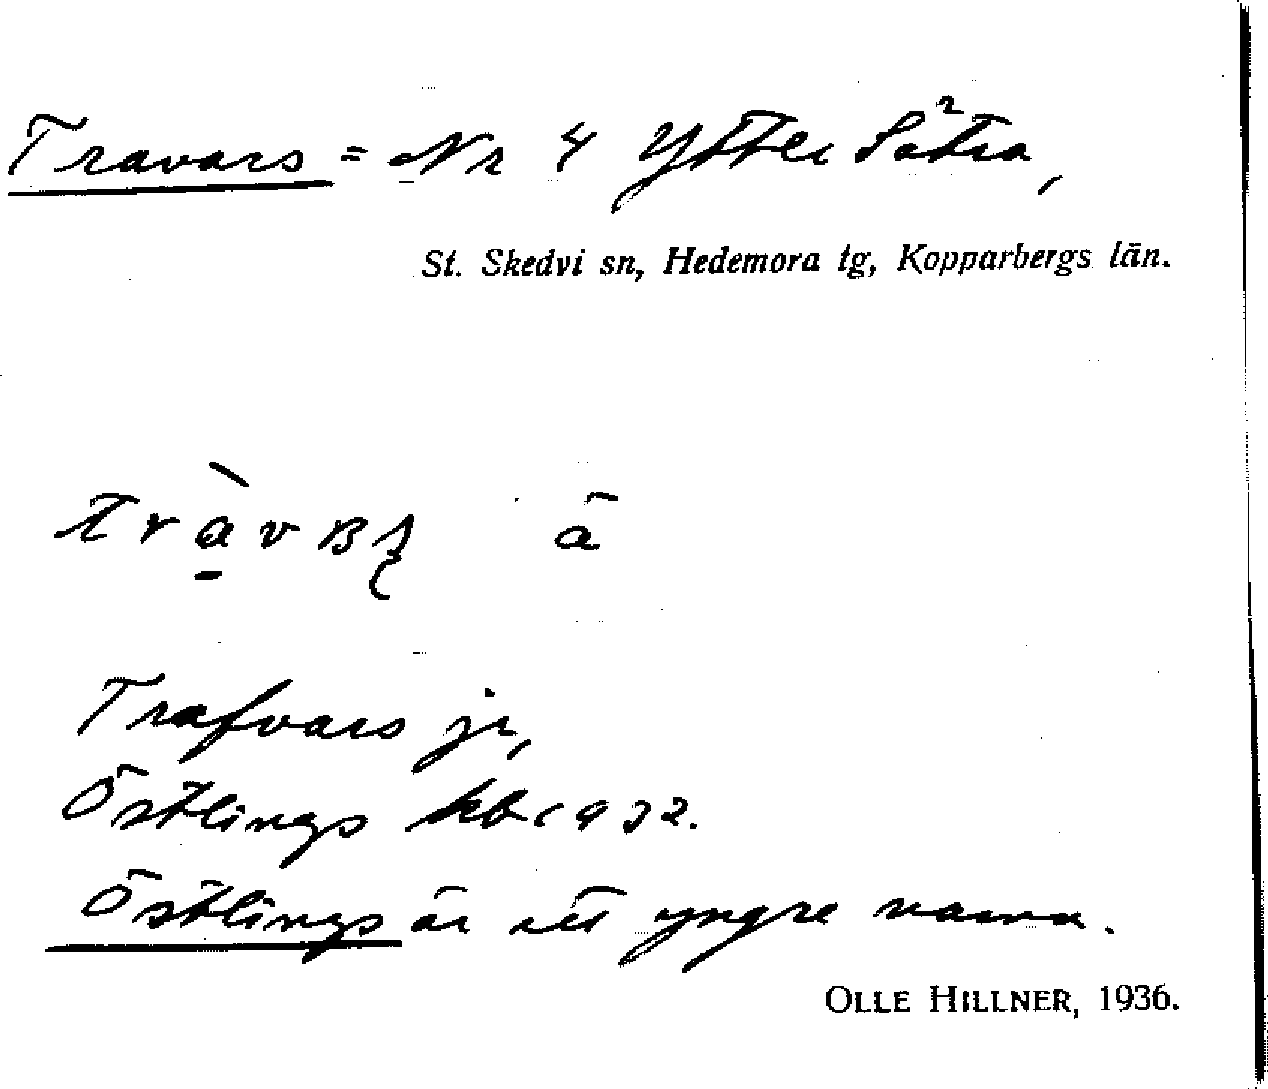 Travars = Nr 4 Ytter Sätra,
St. Skedvi sn, Hedemora tg, Kopparbergs län.
ā
Trafvars jr,
Östlings kb 1932.
Östlings är ett yngre namn.
OLLE HILLNER, 1936.